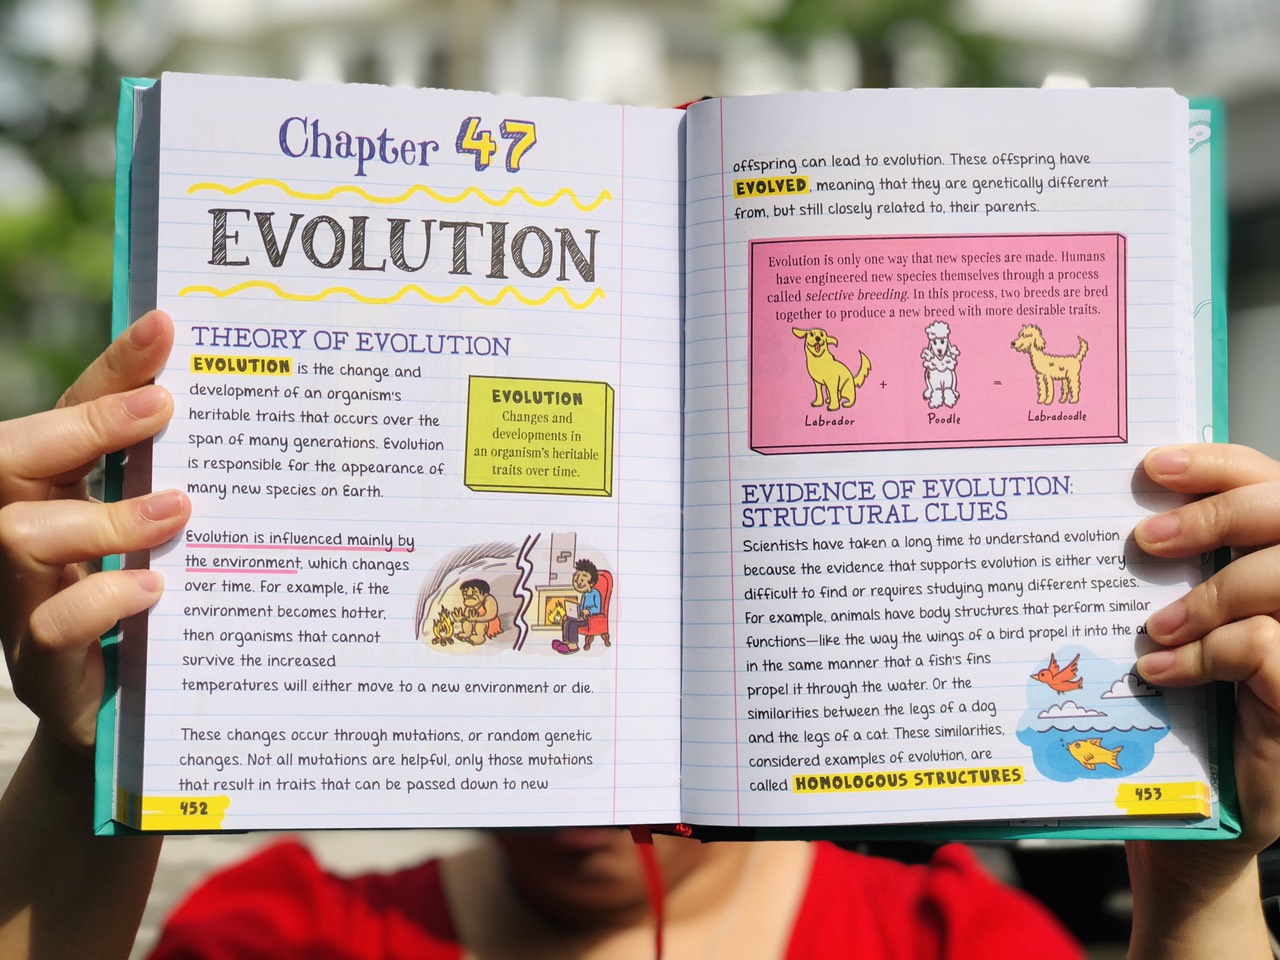 Chapter 47
EVOLUTION
THEORY OF EVOLUTION
EVOLUTION is the change and
development of an organism's
heritable traits that occurs over the
span of many generations. Evolution
is responsible for the appearance of
many new species on Earth.
EVOLUTION
Changes and
developments in
an organism's heritable
traits over time.
Evolution is influenced mainly by
the environment, which changes
over time. For example, if the
environment becomes hotter,
then organisms that cannot
survive the increased
temperatures will either move to a new environment or die.
These changes occur through mutations, or random genetic
changes. Not all mutations are helpful, only those mutations
that result in traits that can be passed down to new
452
offspring can lead to evolution. These offspring have
EVOLVED, meaning that they are genetically different
from, but still closely related to, their parents.
Evolution is only one way that new species are made. Humans
have engineered new species themselves through a process
called selective breeding. In this process, two breeds are bred
together to produce a new breed with more desirable traits.
+ =
Labrador Poodle Labradoodle
EVIDENCE OF EVOLUTION:
STRUCTURAL CLUES
Scientists have taken a long time to understand evolution
because the evidence that supports evolution is either very
difficult to find or requires studying many different species.
For example, animals have body structures that perform similar
functions—like the way the wings of a bird propel it into the
in the same manner that a fish's fins
propel it through the water. Or the
similarities between the legs of a dog
and the legs of a cat. These similarities,
considered examples of evolution, are
called HOMOLOGOUS STRUCTURES.
453